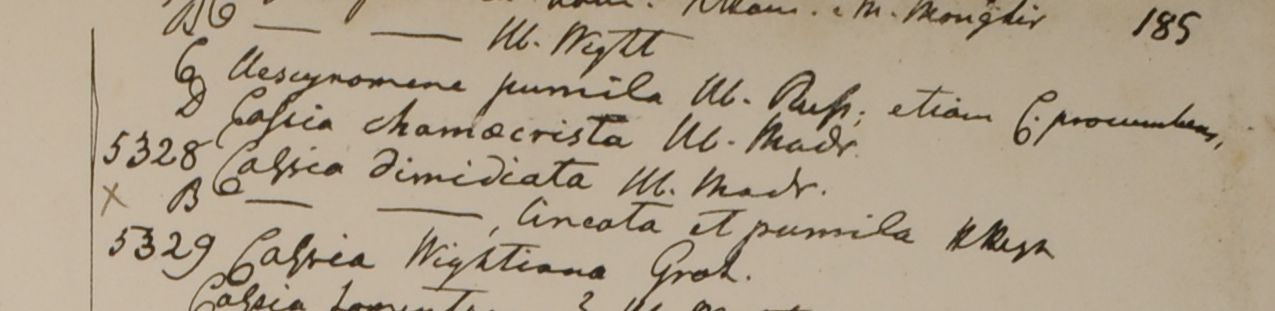 185
B C — — Hb. Wight
C Aescynomene pumila Hb. Russ; etiam C. procumbens,
D Cassia chamæcrista Hb. Madr.
5328 Cassia dimidiata Hb. Madr.
× B C — —, lineata et pumila H Heyn
5329 Cassia Wightiana Grah.
Cassia